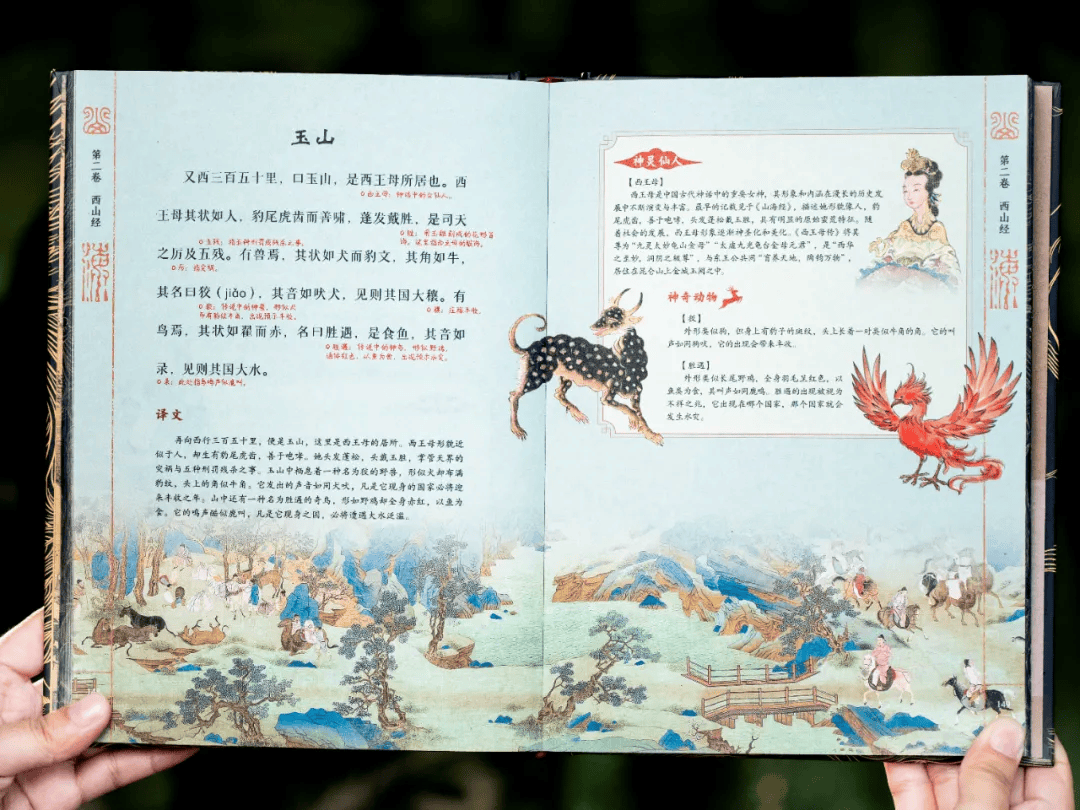 第二卷 西山经
玉山
又西三百五十里，曰玉山，是西王母所居也。西
西王母：神话中的女仙人。
王母其状如人，豹尾虎齿而善啸，蓬发戴胜，是司天
五残：指五种刑罚残杀之事。
之厉及五残。有兽焉，其状如犬而豹文，其角如牛，
厉：指灾祸。
其名曰狡（jiǎo），其音如吠犬，见则其国大穰。有
狡：传说中的神兽，形似犬
穰：庄稼丰收。
鸟焉，其状如翟而赤，名曰胜遇，是食鱼，其音如
胜遇：传说中的神鸟，形似野鸡，
通体红色，以鱼为食，出现预示水灾。
录，见则其国大水。
录：此处指鸟鸣声似鹿叫。
译文
再向西行三百五十里，便是玉山，这里是西王母的居所。西王母形貌近
似于人，却生有豹尾虎齿，善于咆哮。她头发蓬松，头戴玉胜，掌管天界的
灾祸与五种刑罚残杀之事。玉山中栖息着一种名为狡的野兽，形似犬却布满
豹纹，头上的角似牛角。它发出的声音如同犬吠，凡是它现身的国家必将迎
来丰收之年。山中还有一种名为胜遇的奇鸟，形如野鸡却全身赤红，以鱼为
食。它的鸣声酷似鹿叫，凡是它现身之国，必将遭遇大水泛滥。
神灵仙人
【西王母】
西王母是中国古代神话中的重要女神，其形象和内涵在漫长的历史发
展中不断演变与丰富。最早的记载见于《山海经》，描述她形貌像人，豹
尾虎齿，善于咆哮，头发蓬松戴玉胜，具有明显的原始蛮荒特征。随
着社会的发展，西王母形象逐渐神圣化和美化。《西王母传》将其
尊为“九灵太妙龟山金母”“太虚九光龟台金母元君”，是“西华
之至妙，洞阴之极尊”，与东王公共同“育养天地，陶钧万物”，
居住在昆仑山上金城玉阙之中。
神奇动物
【狡】
外形类似狗，但身上有豹子的斑纹，头上长着一对类似牛角的角。它的叫
声如同狗吠，它的出现会带来丰收。
【胜遇】
外形类似长尾野鸡，全身羽毛呈红色，以
鱼类为食，其叫声如同鹿鸣。胜遇的出现被视为
不祥之兆，它出现在哪个国家，那个国家就会
发生水灾。
第二卷 西山经